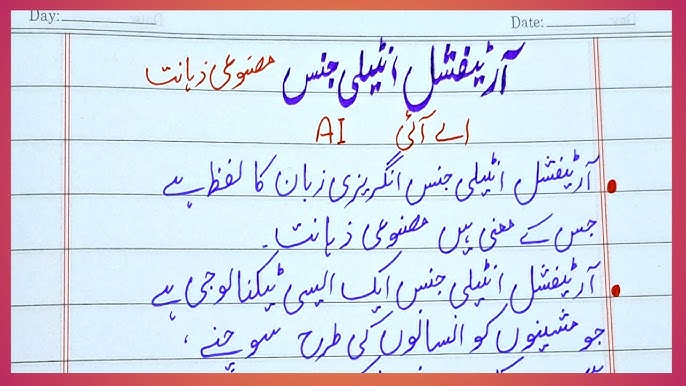 Day: Date:
آرٹیفشل انٹیلی جنس مصنوعی ذہانت
اے آئی AI
آرٹیفشل انٹیلی جنس انگریزی زبان کا لفظ ہے
جس کے معنی ہیں مصنوعی ذہانت۔
آرٹیفشل انٹیلی جنس ایک ایسی ٹیکنالوجی ہے
جو مشینوں کو انسانوں کی طرح سوچنے ،